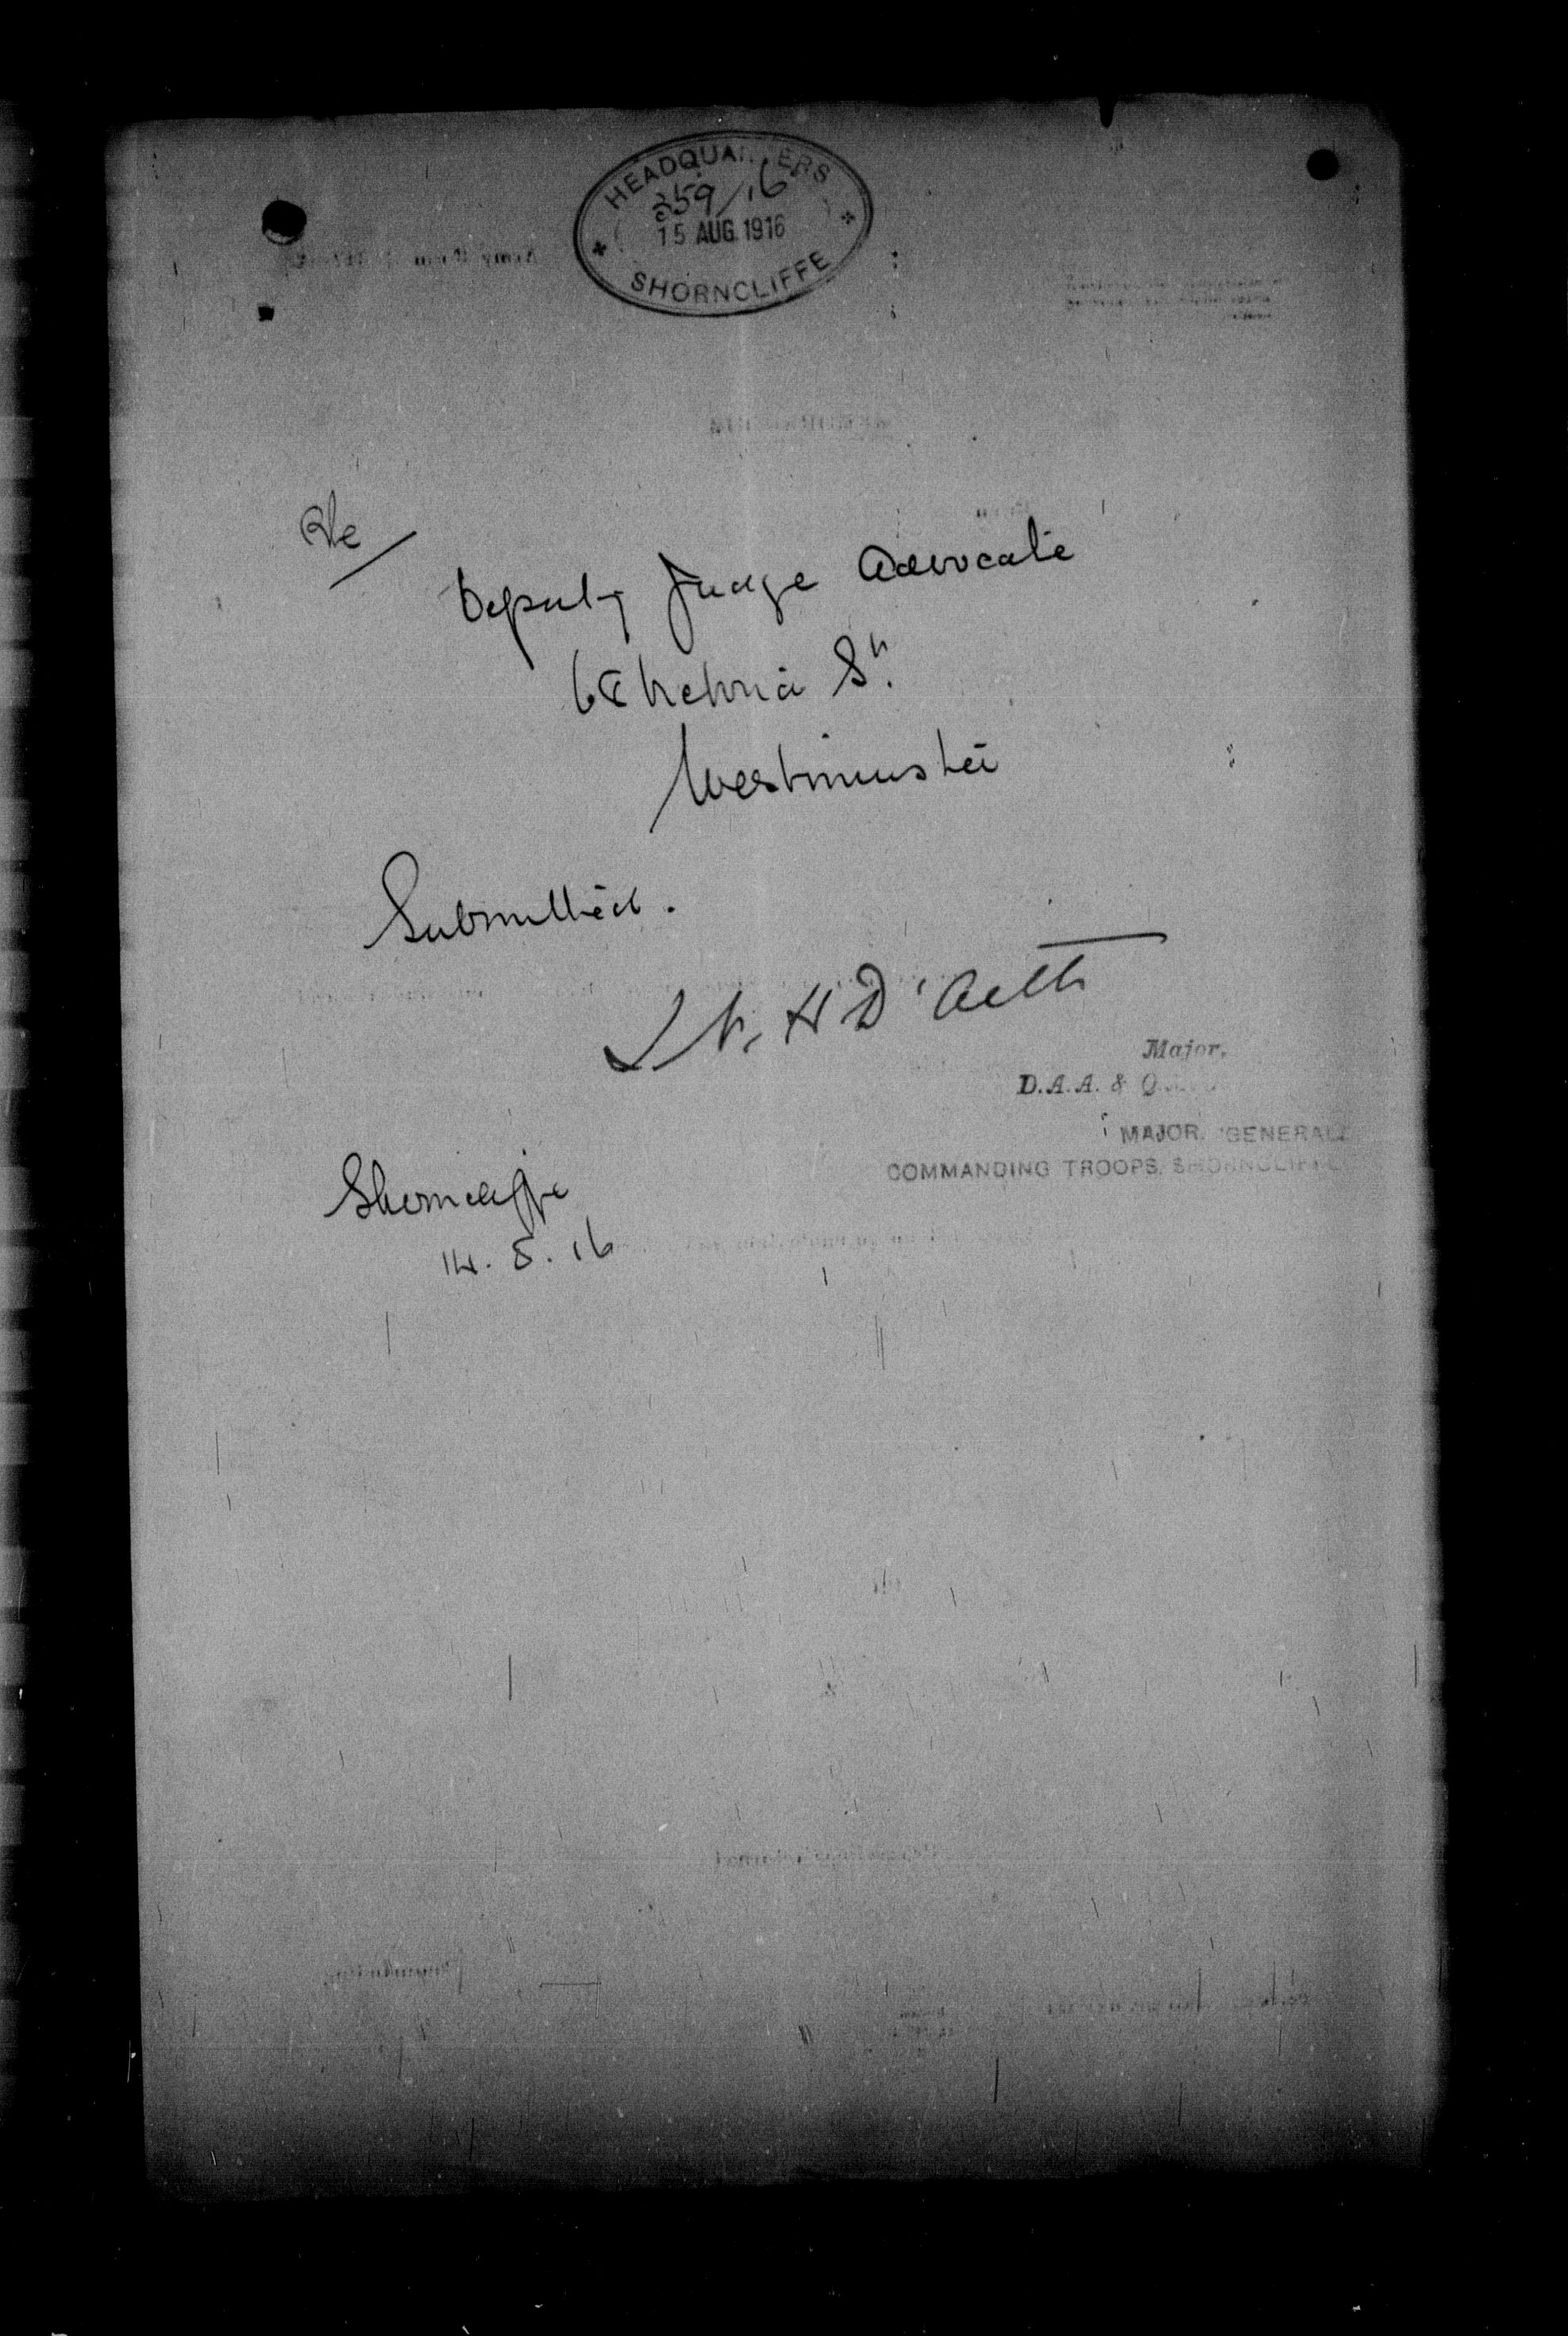 HEADQUARTERS
359/16
15 AUG. 1916
SHORNCLIFFE
The
Deputy Judge Advocate
68 Victoria St.
Westminster
Submitted.
H D'Aeth
Major,
D.A.A. & Q.
MAJOR. GENERAL
COMMANDING TROOPS, SHORNCLIFFE
Shorncliffe
14. 8. 16